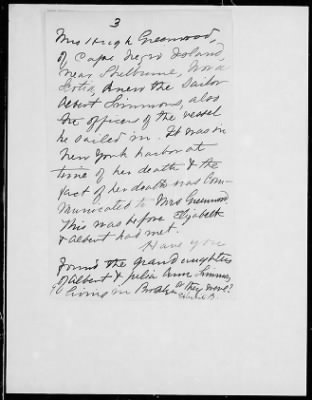 3
Mrs Hugh Greenwood,
of Cape Negro Island,
near Shelburne, Nova
Scotia, knew the sailor
Albert Simmons, also
the officers of the vessel
he sailed in. It was in
New York harbor at
time of her death & the
fact of her death was Com-
municated to Mrs Greenwood
This was before Elizabeth
& Albert had met.
Have you
found the grand daughters
of Albert & Julia Ann Simmons,
living in Brooklyn or they were?